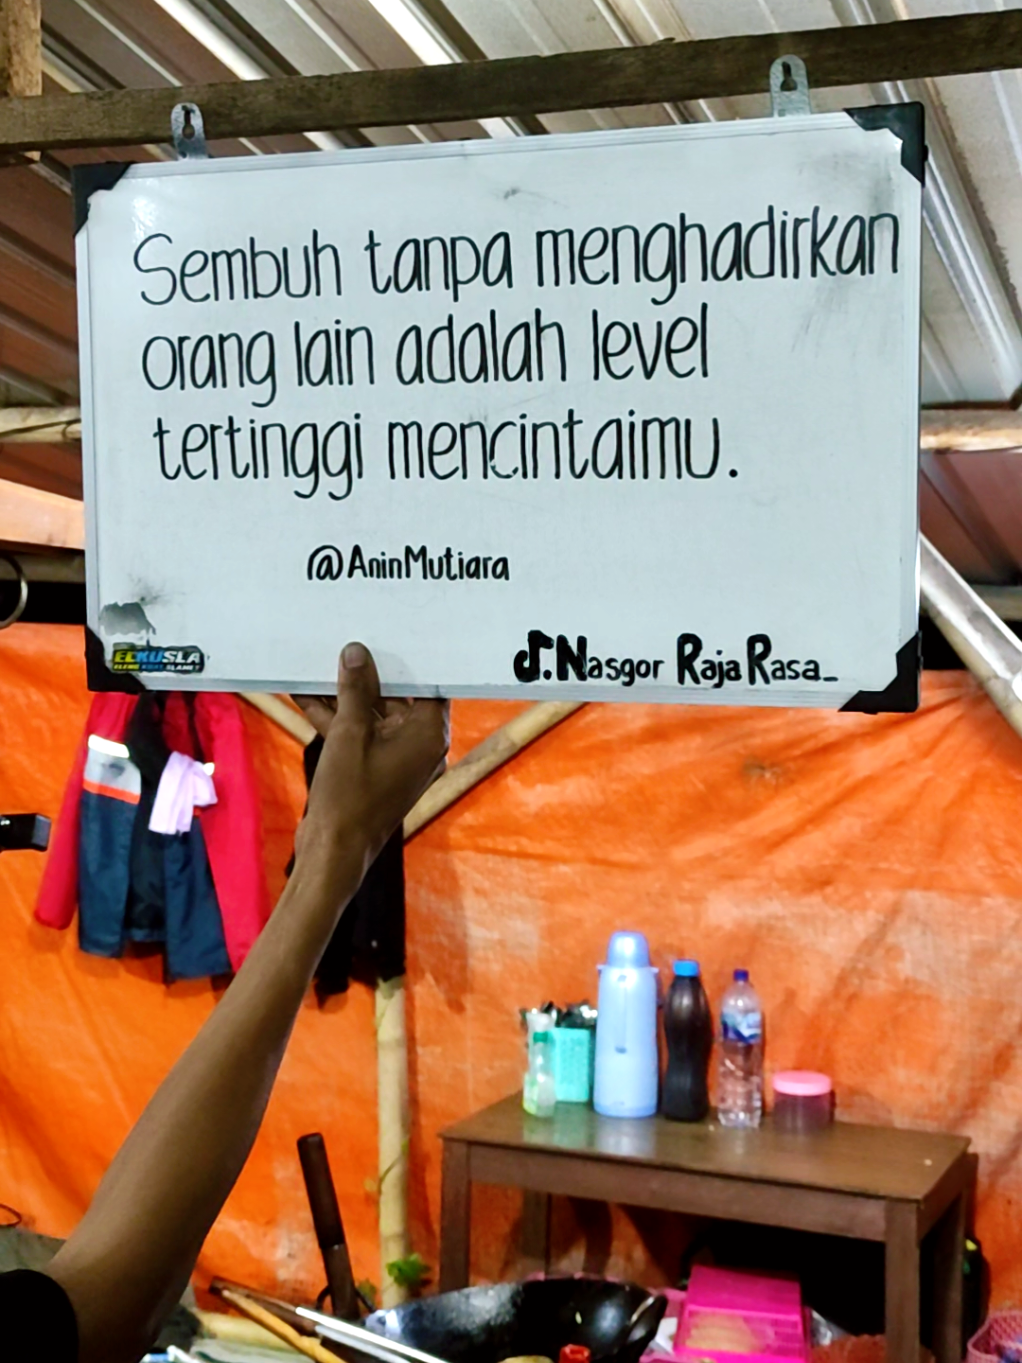 Sembuh tanpa menghadirkan
orang lain adalah level
tertinggi mencintaimu.
@AninMutiara
Nasgor Raja Rasa_
ELKUSLA